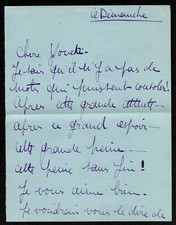 ce Dimanche
Chère
Je sais qu'il n'y a pas de
mots qui puissent consoler !
Après cette grande attente -
après ce grand espoir -
cette grande peine -
cette peine sans fin !
Je vous aime bien -
Je voudrais vous le dire de